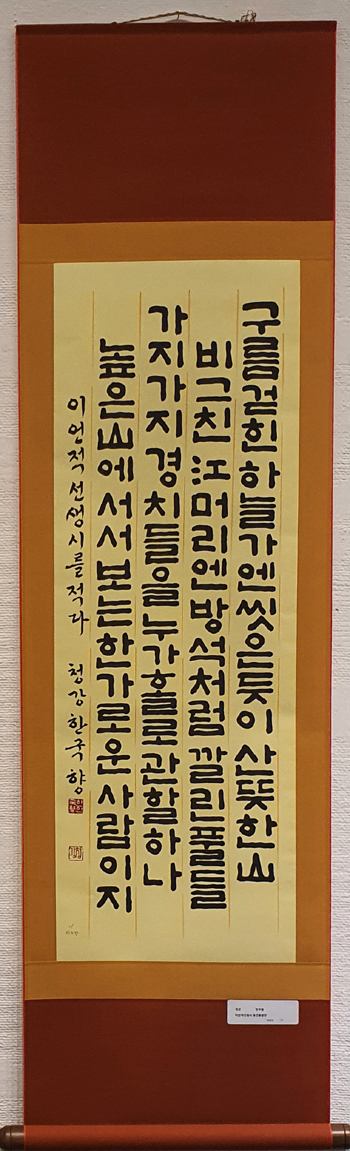 구름 걷힌 하늘가엔 씻은듯이 산뜻한 山
비 그친 江 머리엔 방석처럼 깔린 풀들
가지가지 경치들을 누가 홀로 관할하나
높은 山에 서서 보는 한가로운 사람이지
이언적 선생 시를 적다 청강 한국향